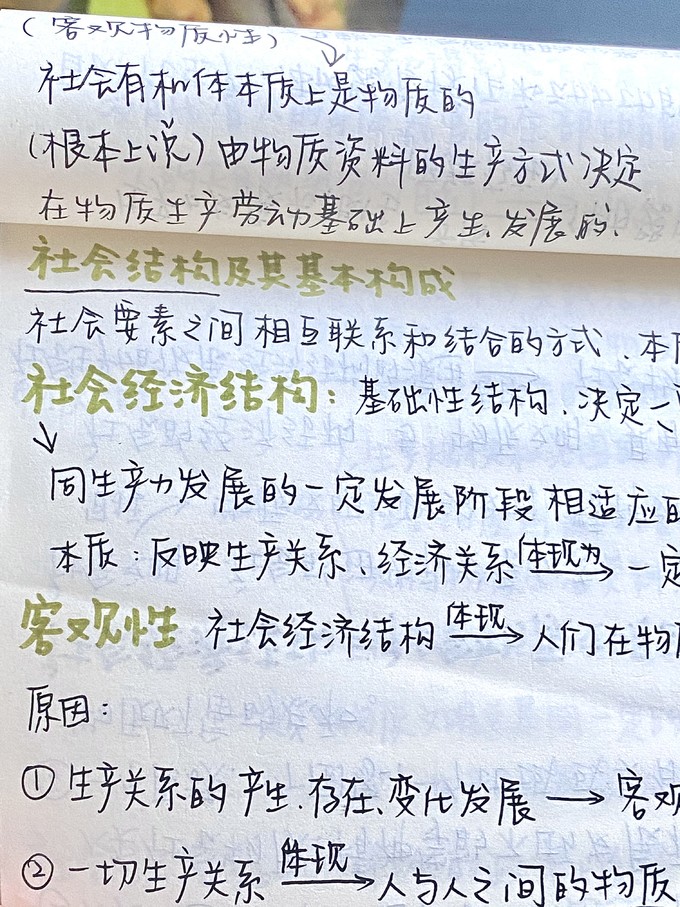 （客观物质性）
社会有机体本质上是物质的
（根本上说）由物质资料的生产方式决定
在物质生产劳动基础上产生、发展的、
社会结构及其基本构成
社会要素之间相互联系和结合的方式、本
社会经济结构：基础性结构、决定一
同生产力发展的一定发展阶段相适应的
本质：反映生产关系、经济关系 体现为→ 一定
客观性 社会经济结构 体现→ 人们在物
原因：
①生产关系的产生、存在、变化发展→客观
②一切生产关系 体现→人与人之间的物质